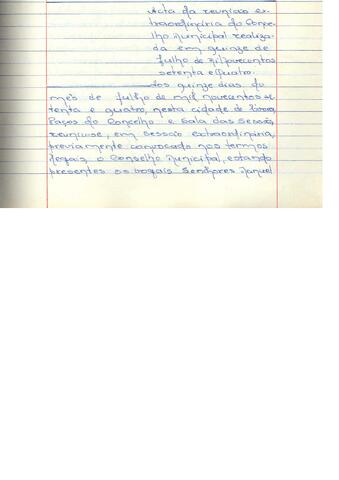 Acta da reunião ex-
traordinária do Conse-
lho Municipal realiza-
da em quinze de
Julho de Mil Novecentos
setenta e Quatro.
Aos quinze dias do
mês de Julho de mil novecentos se-
tenta e quatro, nesta cidade de
Paços do Concelho e Sala das Sessões,
reuniu-se, em sessão extraordinária,
previamente convocado nos termos
legais, o Conselho Municipal, estando
presentes os vogais Senhores Manuel